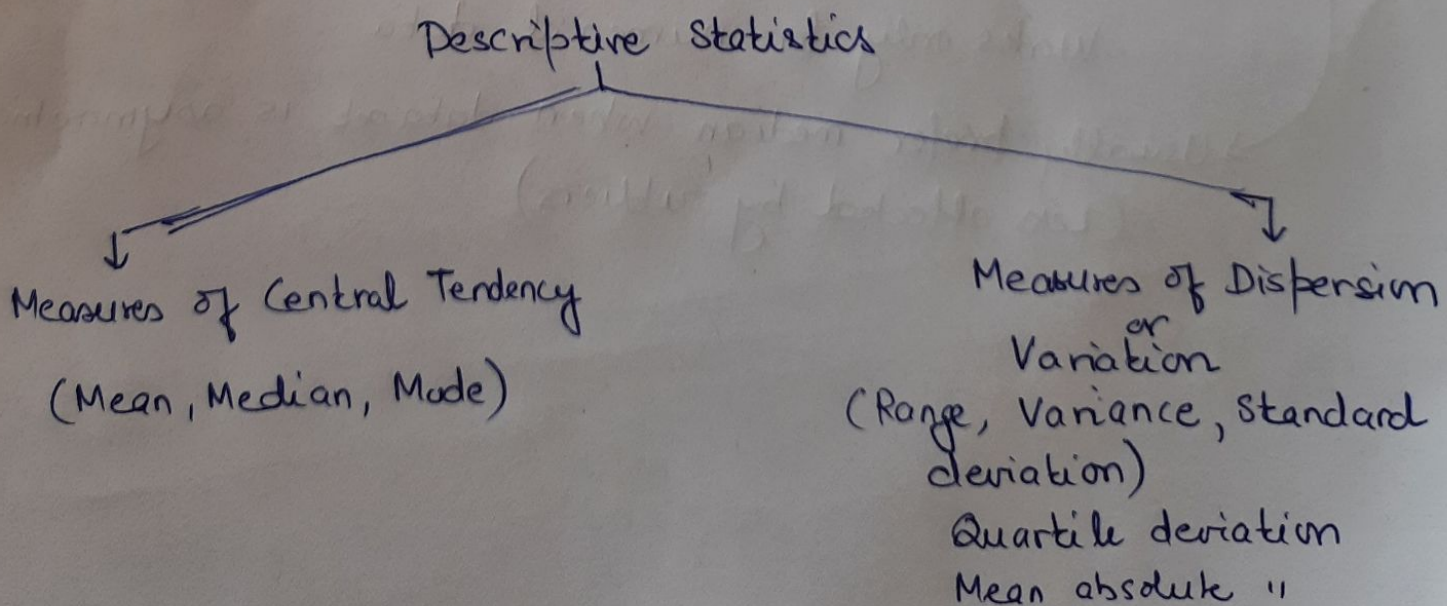 Descriptive Statistics
Measures of Central Tendency
(Mean, Median, Mode)
Measures of Dispersion
or
Variation
(Range, Variance, Standard
deviation)
Quartile deviation
Mean absolute "